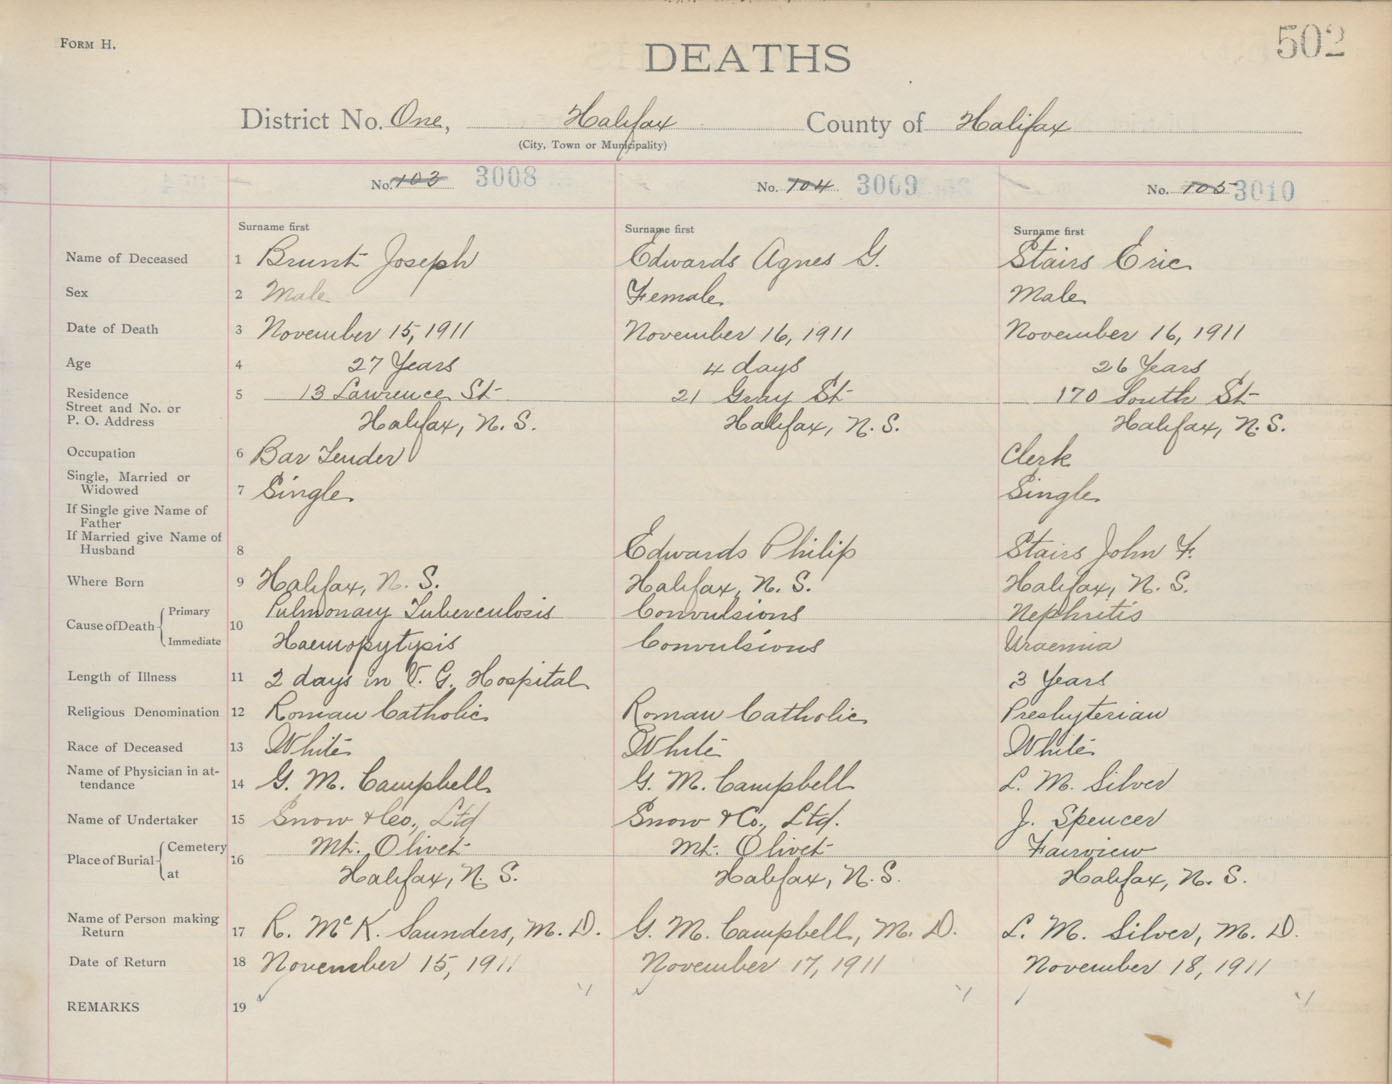 FORM H.
502
DEATHS
District No. One, Halifax County of Halifax
(City, Town or Municipality)
No. 103 3008 No. 104 3009 No. 105 3010
Surname first Surname first Surname first
Name of Deceased 1 Brunt Joseph Edwards Agnes G. Stairs Eric
Sex 2 Male Female Male
Date of Death 3 November 15, 1911 November 16, 1911 November 16, 1911
Age 4 27 Years 4 days 26 Years
Residence 5 13 Lawrence St 21 Gray St 170 South St
Street and No. or
P. O. Address Halifax, N. S. Halifax, N. S. Halifax, N. S.
Occupation 6 Bar Tender Clerk
Single, Married or
Widowed 7 Single Single
If Single give Name of
Father
If Married give Name of
Husband 8 Edwards Philip Stairs John F.
Where Born 9 Halifax, N. S. Halifax, N. S. Halifax, N. S.
Cause of Death 10 Primary Pulmonary Tuberculosis Convulsions Nephritis
Immediate Haemopytysis Convulsions Uraemia
Length of Illness 11 2 days in V. G. Hospital 3 Years
Religious Denomination 12 Roman Catholic Roman Catholic Presbyterian
Race of Deceased 13 White White White
Name of Physician in at-
tendance 14 G. M. Campbell G. M. Campbell L. M. Silver
Name of Undertaker 15 Snow & Co., Ltd Snow & Co., Ltd. J. Spencer
Place of Burial 16 Cemetery Mt. Olivet Mt. Olivet Fairview
at Halifax, N. S. Halifax, N. S. Halifax, N. S.
Name of Person making
Return 17 R. McK. Saunders, M. D. G. M. Campbell, M. D. L. M. Silver, M. D.
Date of Return 18 November 15, 1911 November 17, 1911 November 18, 1911
REMARKS 19